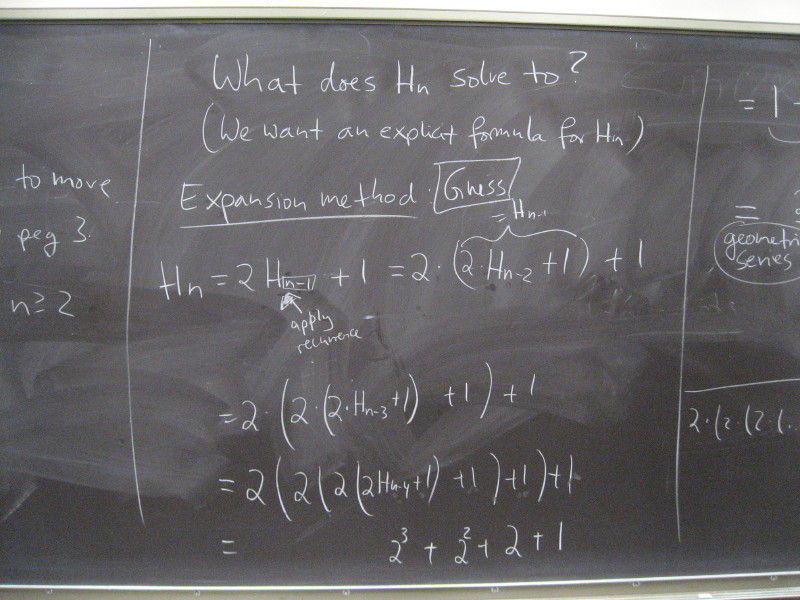 to move
peg 3.
n ≥ 2
What does Hn solve to?
(We want an explicit formula for Hn)
Expansion method: Guess
= Hn-1
Hn = 2 Hn-1 + 1 = 2·(2·Hn-2 + 1) + 1
apply
recurrence
= 2·(2·(2·Hn-3 + 1) + 1) + 1
= 2(2(2(2Hn-4+1) +1)+1)+1
= 2³ + 2² + 2 + 1
= 1
=
geometri
series
2·(2·(2·(..